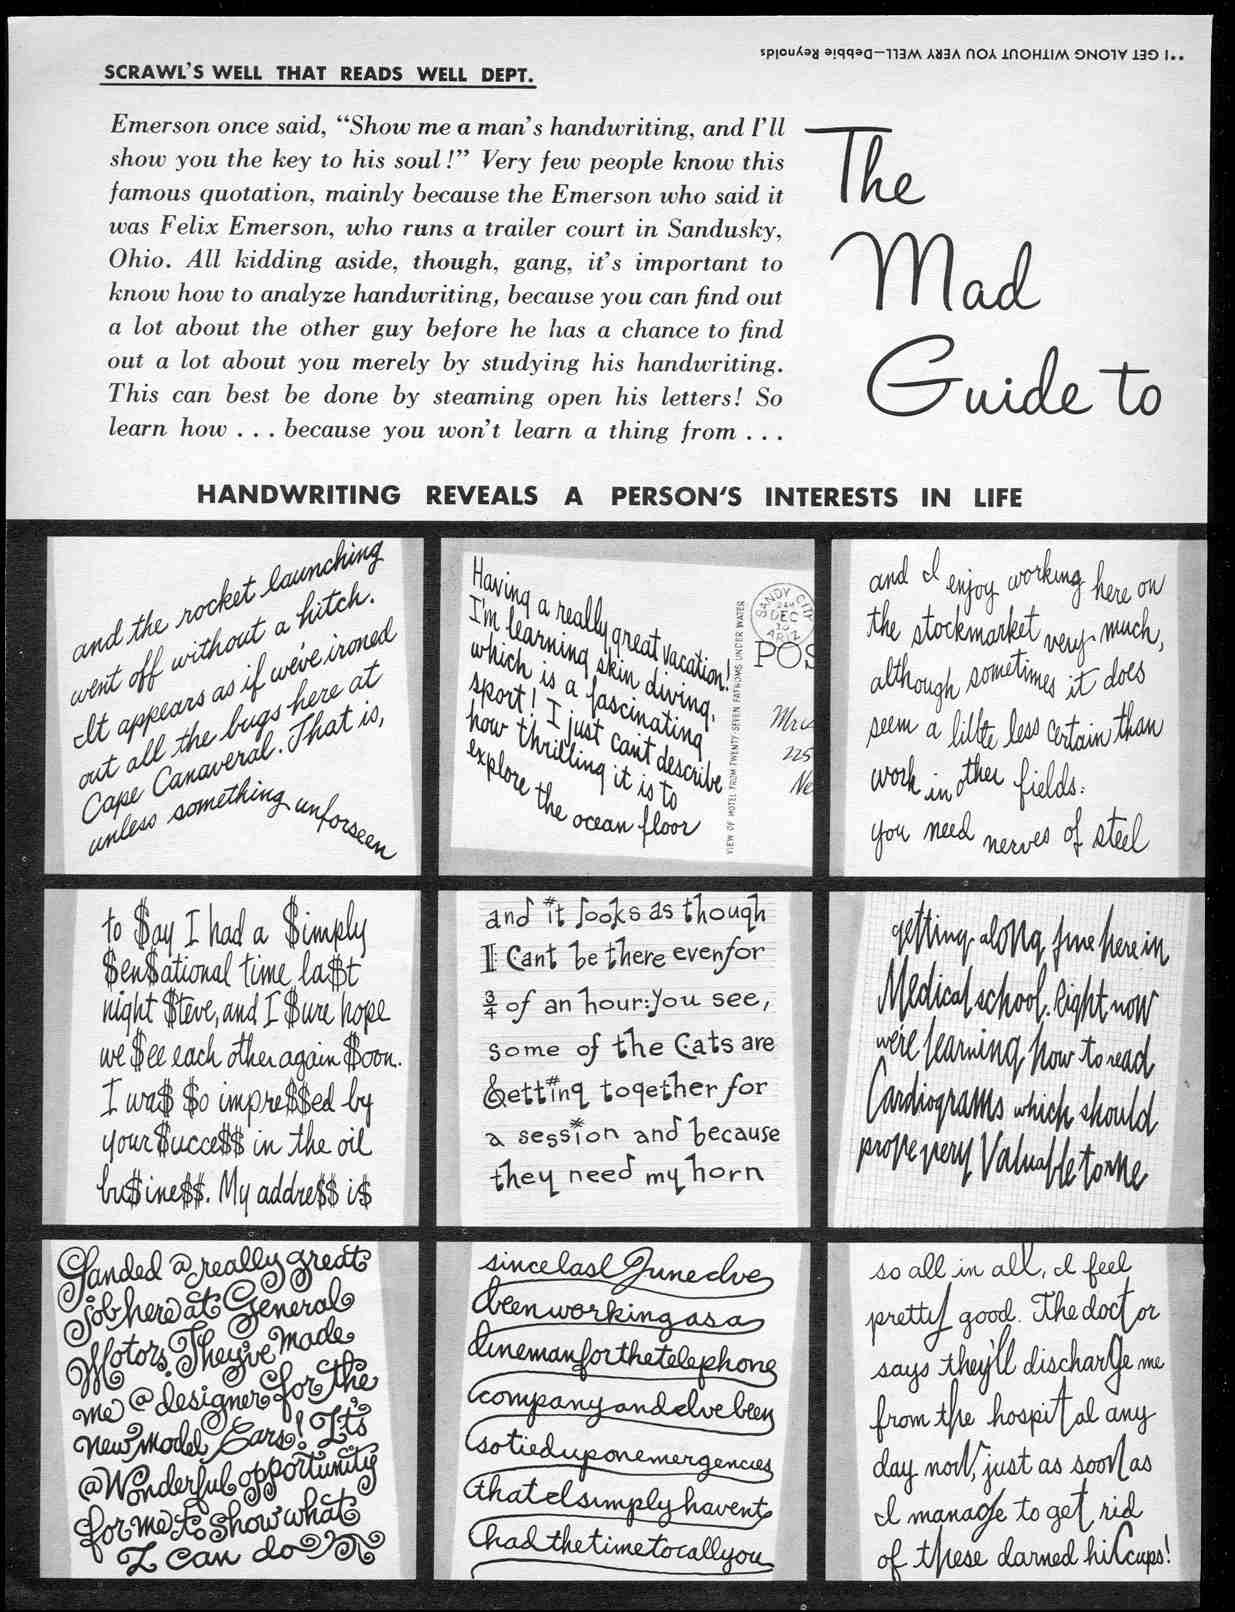 **I GET ALONG WITHOUT YOU VERY WELL—Debbie Reynolds
SCRAWL'S WELL THAT READS WELL DEPT.
Emerson once said, “Show me a man's handwriting, and I'll
show you the key to his soul!” Very few people know this
famous quotation, mainly because the Emerson who said it
was Felix Emerson, who runs a trailer court in Sandusky,
Ohio. All kidding aside, though, gang, it's important to
know how to analyze handwriting, because you can find out
a lot about the other guy before he has a chance to find
out a lot about you merely by studying his handwriting.
This can best be done by steaming open his letters! So
learn how . . . because you won't learn a thing from . . .
The
Mad
Guide to
HANDWRITING REVEALS A PERSON'S INTERESTS IN LIFE
and the rocket launching
went off without a hitch.
It appears as if we've ironed
out all the bugs here at
Cape Canaveral. That is,
unless something unforseen
Having a really great vacation!
I'm learning skin diving,
which is a fascinating
sport! I just can't describe
how thrilling it is to
explore the ocean floor
VIEW OF HOTEL FROM TWENTY-SEVEN FATHOMS UNDER WATER
SANDY CITY
DEC
ARIZ
POS
Mrs
225
Ne
and I enjoy working here on
the stockmarket very much,
although sometimes it does
seem a little less certain than
work in other fields.
you need nerves of steel
to $ay I had a $imply
$en$ational time la$t
night $teve, and I $ure hope
we $ee each other again $oon.
I wa$ $o impre$$ed by
your $ucce$$ in the oil
bu$ine$$. My addre$$ i$
and it looks as though
I Cant be there even for
3/4 of an hour. You see,
some of the Cats are
Getting together for
a session and because
they need my horn
getting along fine here in
Medical school. Right now
we're learning how to read
Cardiograms which should
prove very Valuable to me
Landed a really great
job here at General
Motors. They've made
me a designer for the
new model Cars! It's
a Wonderful opportunity
for me to show what
I can do
since last June Ive
been working as a
lineman for the telephone
company and Ive been
so tied up on emergencies
that I simply havent
had the time to call you
so all in all, I feel
pretty good. The doctor
says they'll discharge me
from the hospital any
day now, just as soon as
I manage to get rid
of these darned hiccups!